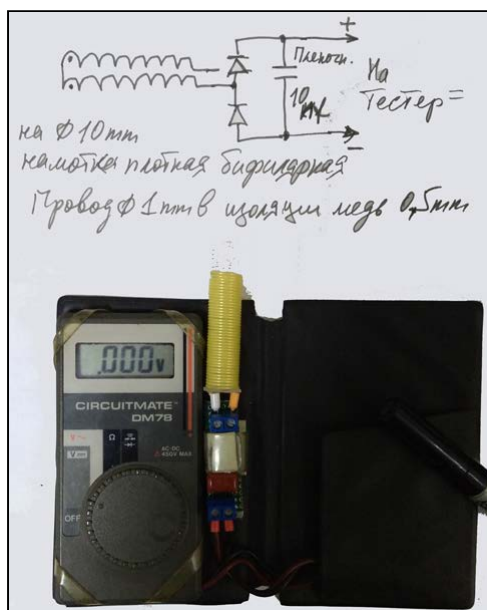 +
Пленочн.
10 мкf
На
Тестер =
-
на Ф 10 mm
намотка плотная бифилярная
Провод Ф 1 mm в изоляции медь 0,5mm
.000v
CIRCUITMATE™
DM78
V~
Ω
V
AC-DC
450V MAX
OFF